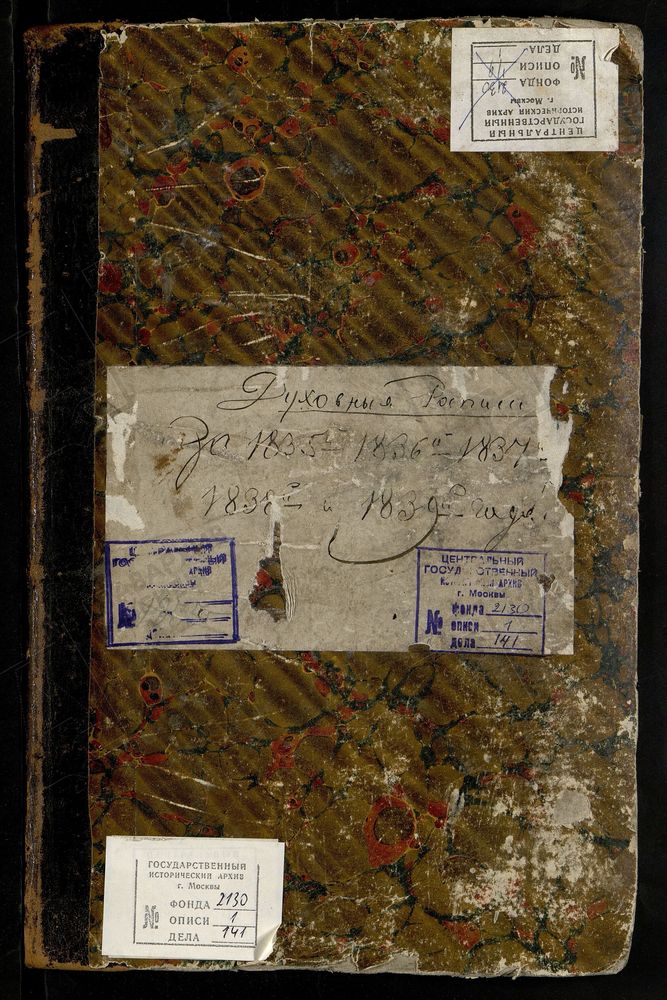 ЦЕНТРАЛЬНЫЙ
ГОСУДАРСТВЕННЫЙ
ИСТОРИЧЕСКИЙ АРХИВ
г. Москвы
№
ФОНДА 2130
ОПИСИ
ДЕЛА
Духовныя Росписи
За 1835й 1836й 1837
1838й и 1839й года.
АРХИВ
№
ЦЕНТРАЛЬНЫЙ
г. Москвы
№
фонда 2130
описи 1
дела 141
ГОСУДАРСТВЕННЫЙ
ИСТОРИЧЕСКИЙ АРХИВ
г. Москвы
№
ФОНДА 2130
ОПИСИ 1
ДЕЛА 141